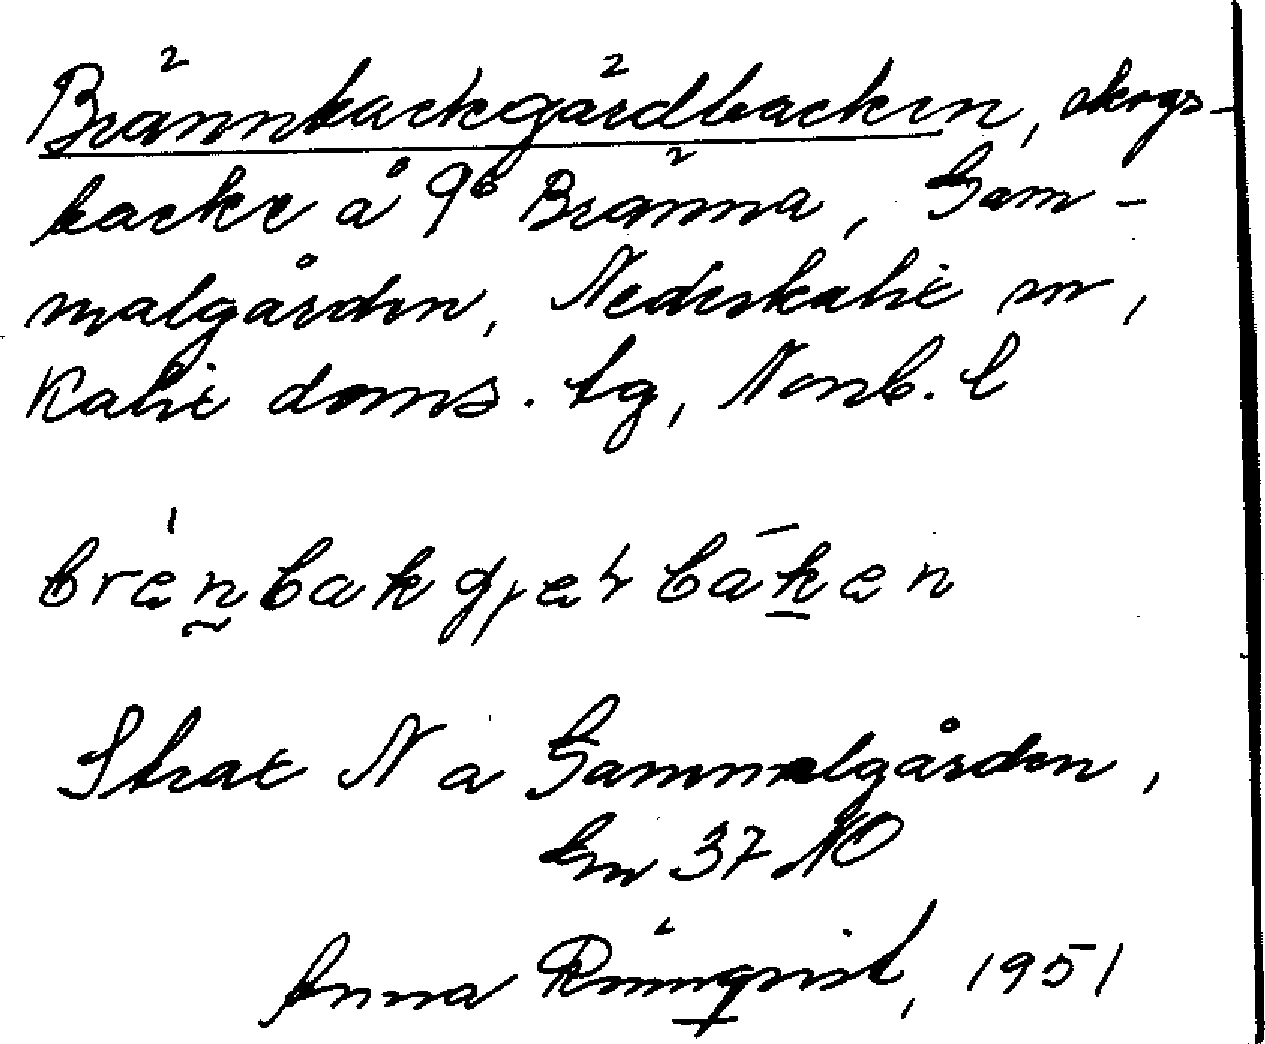 Brännbackgårdbacken, skogs-
backe å 9⁶ Bränna, Gam-
malgården, Nederkalix sn,
Kalix doms. tg, Norrb. l
brénbakgjɑḷbákən
Strax N a Gammalgården,
Gn 37 NO
Anna Rönnqvist, 1951